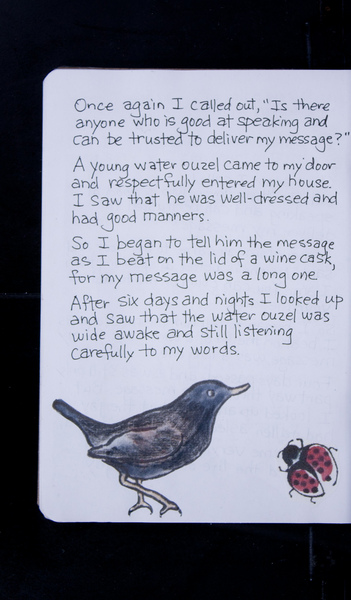 Once again I called out, "Is there
anyone who is good at speaking and
can be trusted to deliver my message?"
A young water ouzel came to my door
and respectfully entered my house.
I saw that he was well-dressed and
had good manners.
So I began to tell him the message
as I beat on the lid of a wine cask,
for my message was a long one.
After six days and nights I looked up
and saw that the water ouzel was
wide awake and still listening
carefully to my words.